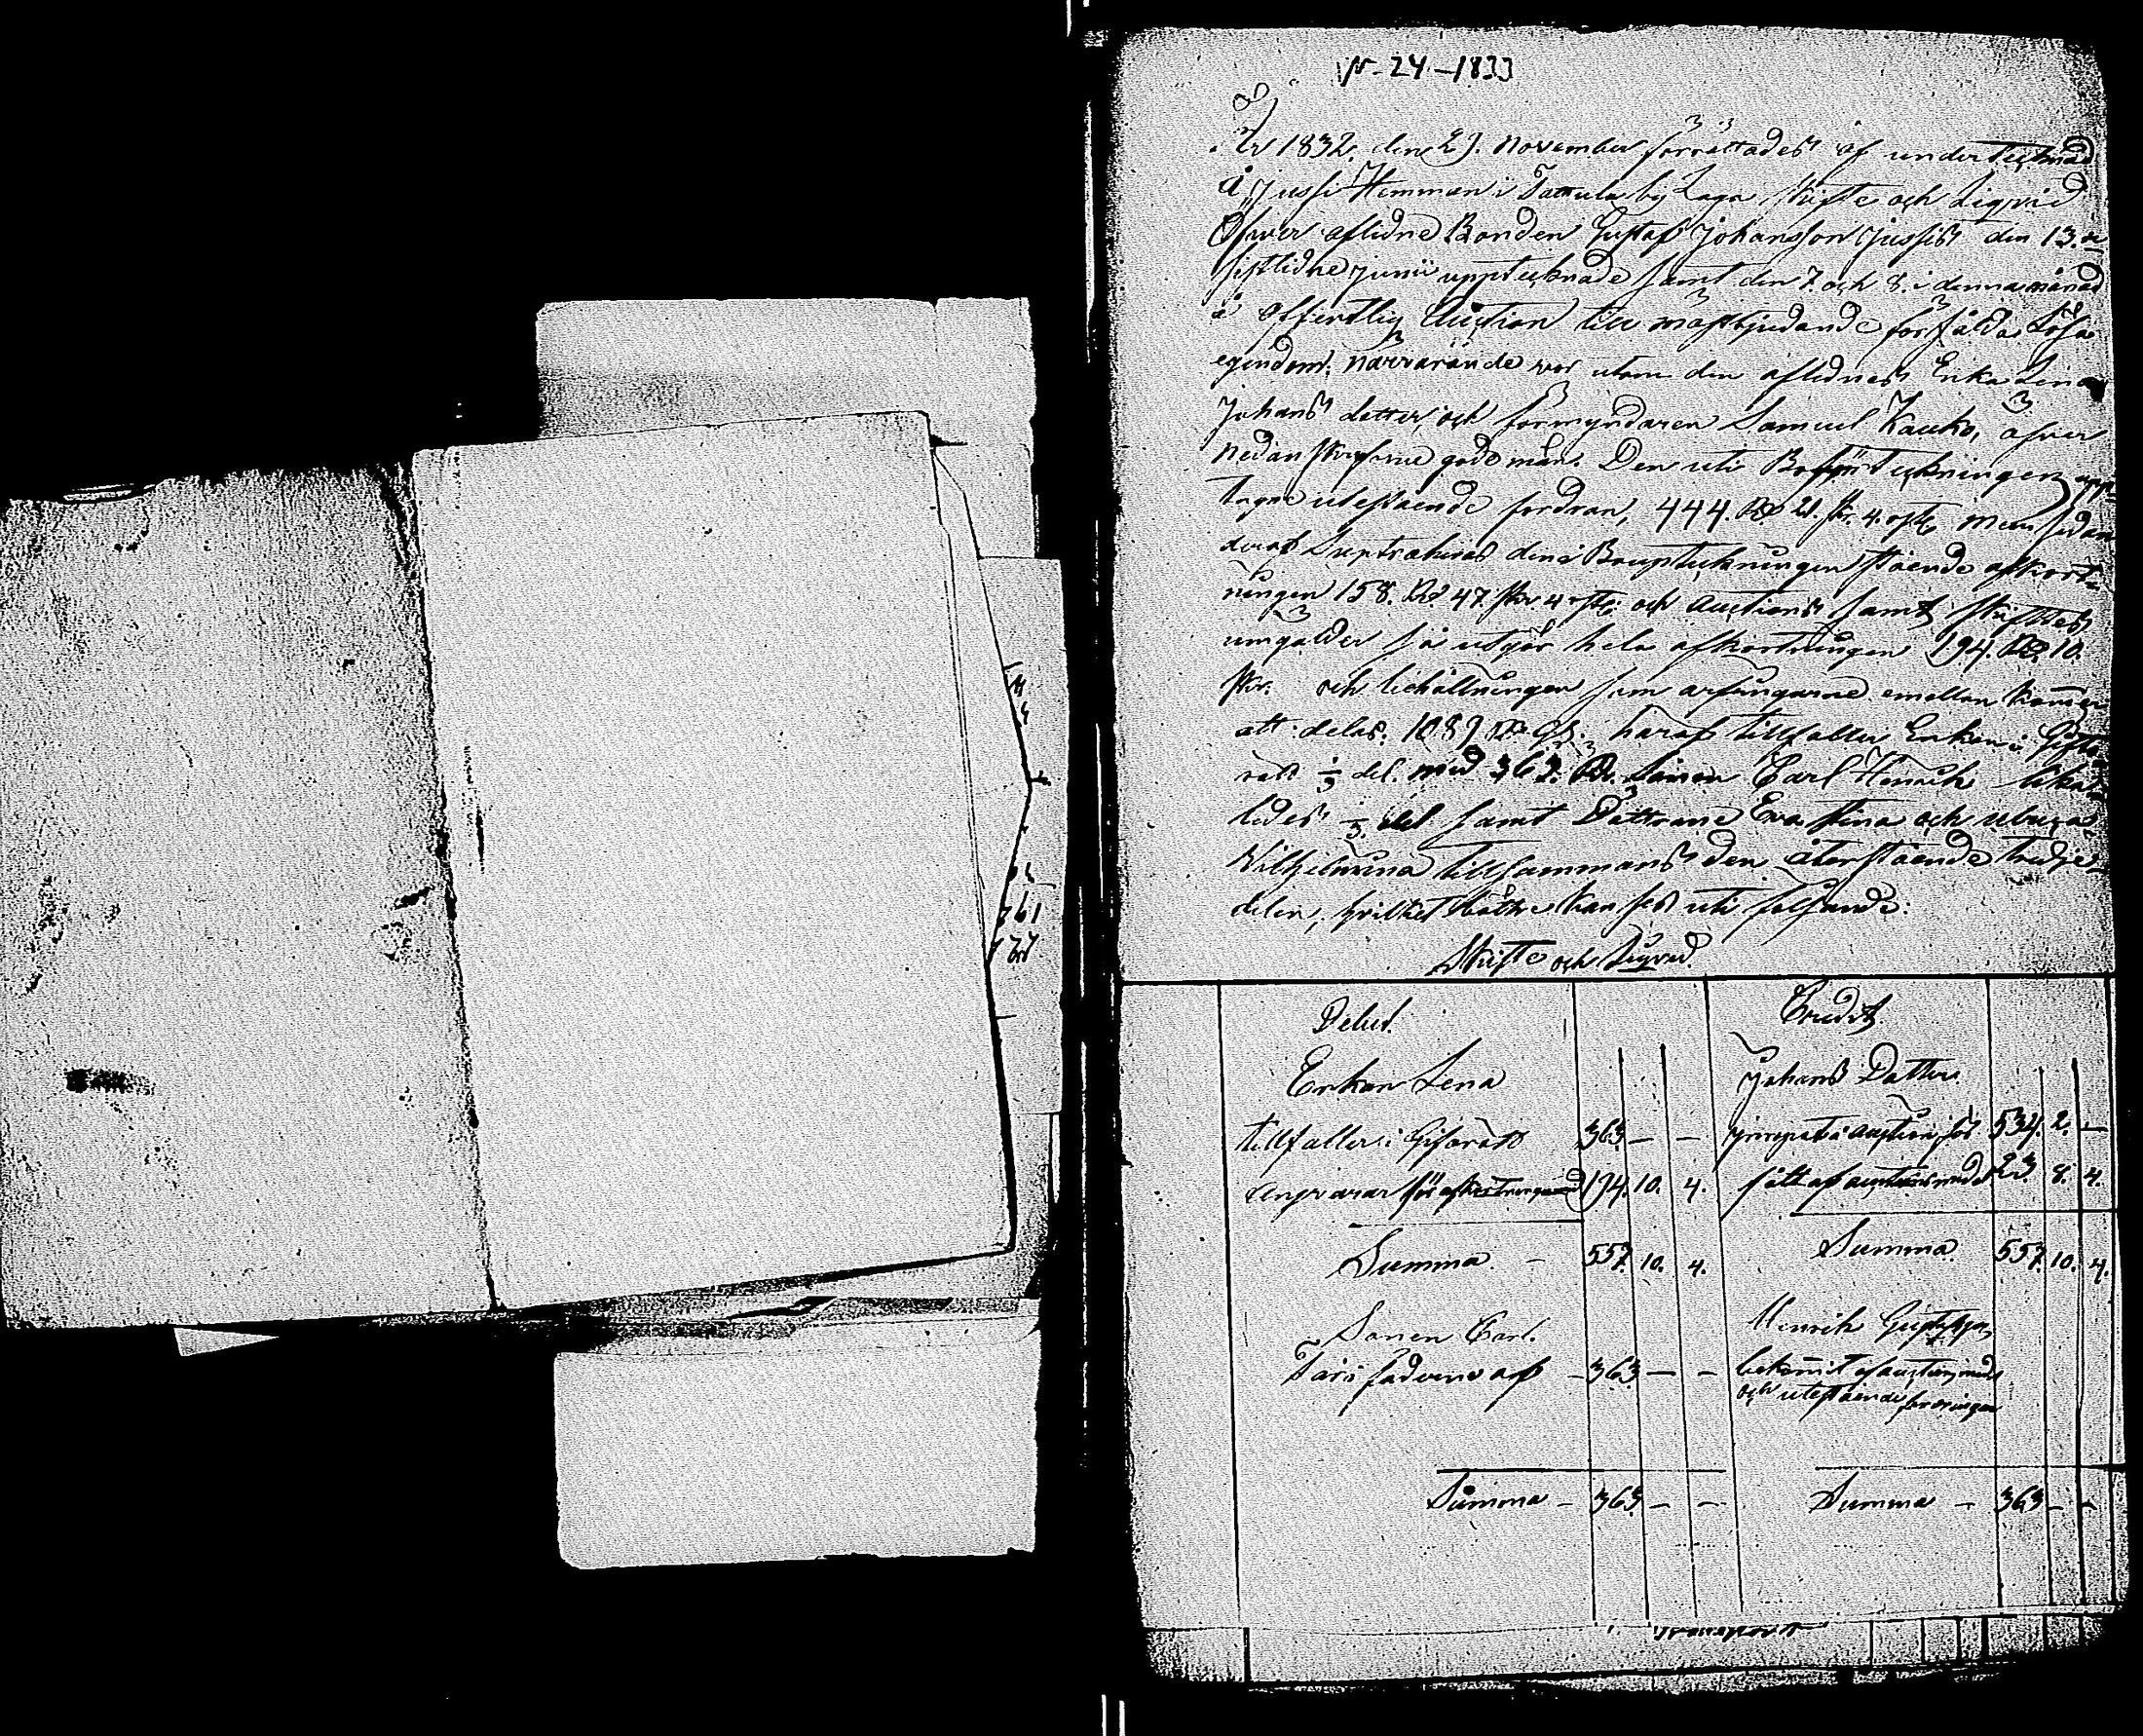 N. 24 – 1833
År 1832. den 23. November förrättades af undertecknad
å Jussi Hemman i Tattula by Laga skifte och Liqvid
öfwer aflidne Bonden Gustaf Johansson Jussis den 13.
sistlidne junii upptecknade samt den 7. och 8. i denna månad
å offentlig Auction till mästbjudande försålda Lösa
egendom. närvarande vor utom den aflidnes Enka Lena
Johans dotter, och förmyndaren Samuel Kauko, äfven
nedanskrefne gode män. Den uti Boupteckningen upp
tagne utestående fordran, 444. RD 21. sk. 4. rst. men sedan
deraf subtraheras den i Boupteckningen stående afkort-
ningen 158. RD 47 sk 4 rst. och auctions samt skiftes
umgälder så utgör hela afkortningen 194. RD. 10.
sk. och behållningen som arfvingarne emellan kommer
att delas. 1089 RD häraf tillfaller Enkan i Gifto
rätt 1/3 del. med 363. RD. Sonen Carl Henrik lika
ledes 1/3 del samt Döttrarne Eva Stina och Ulrica
Wilhelmina tillsammans den återstående tredje-
delen, hvilket bättre kan ses uti följande:
Skifte och Liqvid.
Debet. Credit.
Enkan Lena Johans Dotter.
tillfaller i Giftorätt 363 – – inropat å auction för 534. 2. –
ansvarar för afkortningen 194. 10. 4. fått af auctions med 23. 8. 4.
Summa – 557. 10. 4. Summa 557. 10. 4.
Sonen Carl. Henrik Gustafsson
Får i fäderne arf – 363 – – bekommit af auctions med
och utestående fordringar
Summa – 363 – – Summa – 363 – –
Transport